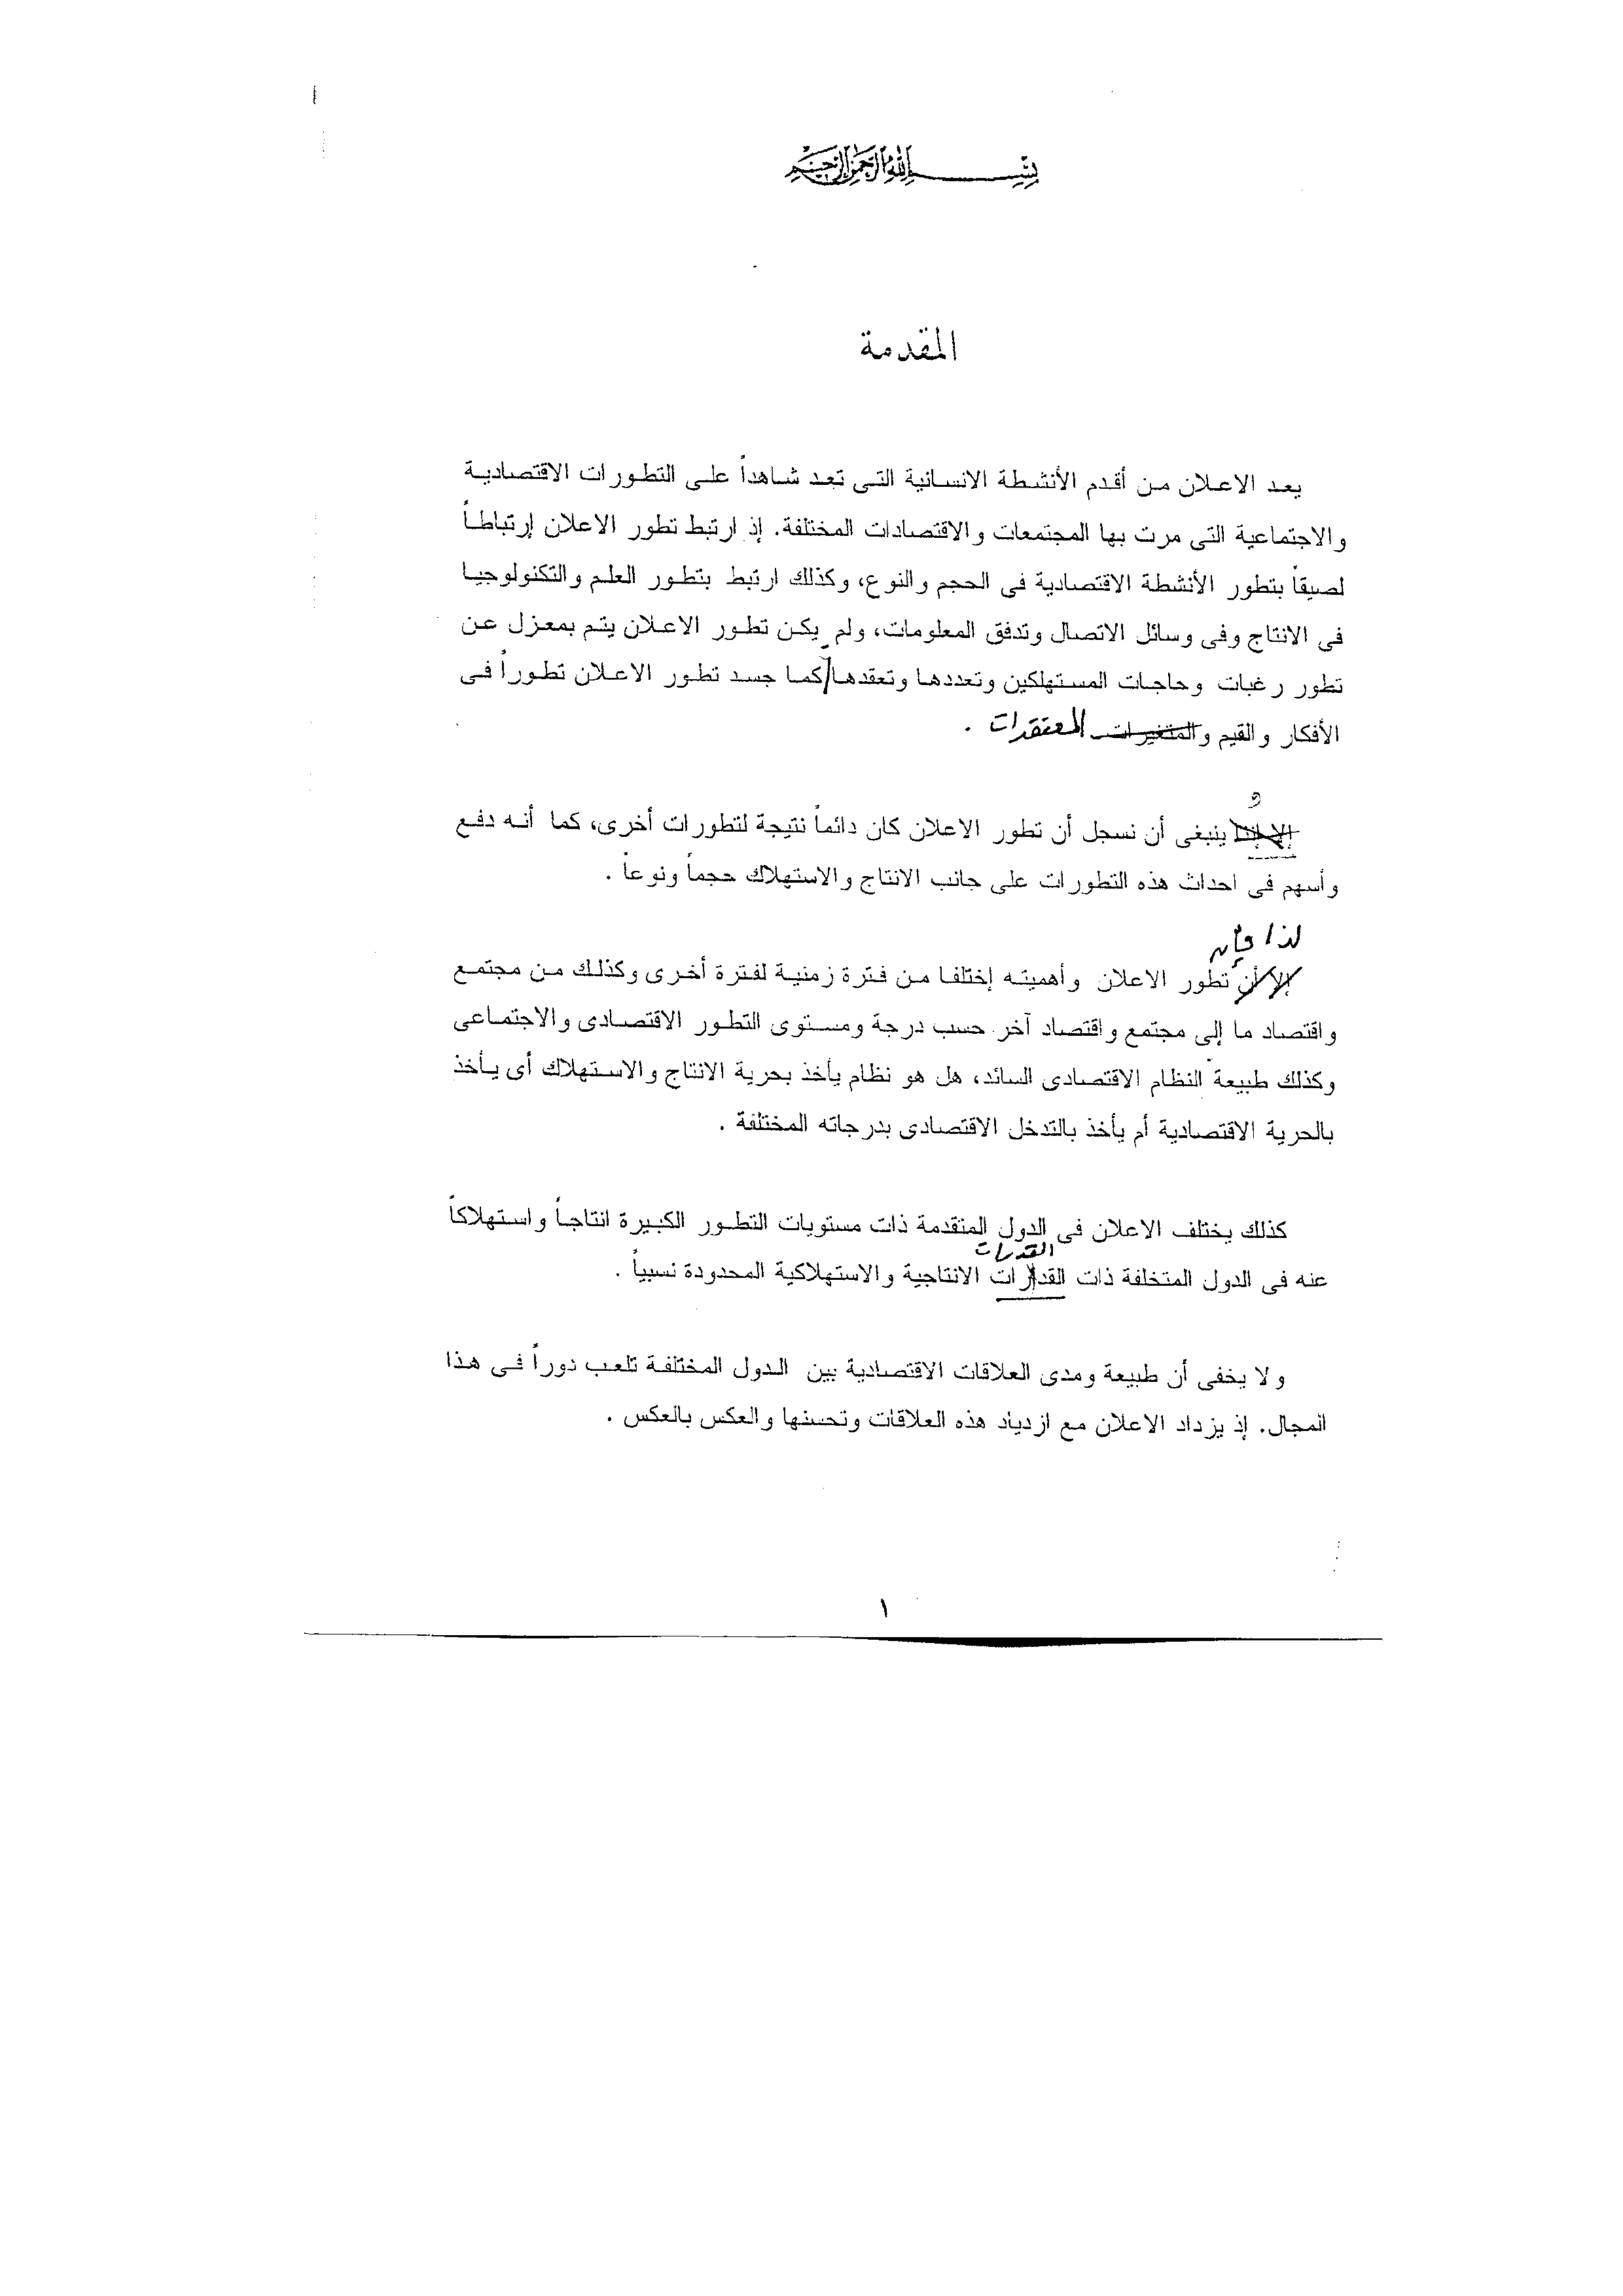 بسم الله الرحمن الرحيم
المقدمة
يعد الاعلان من أقدم الأنشطة الانسانية التى تعد شاهداً على التطورات الاقتصادية
والاجتماعية التى مرت بها المجتمعات والاقتصادات المختلفة. إذ ارتبط تطور الاعلان إرتباطاً
لصيقاً بتطور الأنشطة الاقتصادية فى الحجم والنوع، وكذلك ارتبط بتطور العلم والتكنولوجيا
فى الانتاج وفى وسائل الاتصال وتدفق المعلومات، ولم يكن تطور الاعلان يتم بمعزل عن
تطور رغبات وحاجات المستهلكين وتعددها وتعقدها كما جسد تطور الاعلان تطوراً فى
الأفكار والقيم والمتغيرات المعتقدات .
و
ينبغى أن نسجل أن تطور الاعلان كان دائماً نتيجة لتطورات أخرى، كما أنه دفع
وأسهم فى احداث هذه التطورات على جانب الانتاج والاستهلاك حجماً ونوعاً .
لذا فإن
إلا أن تطور الاعلان وأهميته إختلفا من فترة زمنية لفترة أخرى وكذلك من مجتمع
واقتصاد ما إلى مجتمع واقتصاد آخر حسب درجة ومستوى التطور الاقتصادى والاجتماعى
وكذلك طبيعة النظام الاقتصادى السائد، هل هو نظام يأخذ بحرية الانتاج والاستهلاك أى يأخذ
بالحرية الاقتصادية أم يأخذ بالتدخل الاقتصادى بدرجاته المختلفة .
كذلك يختلف الاعلان فى الدول المتقدمة ذات مستويات التطور الكبيرة انتاجاً واستهلاكاً
القدرات
عنه فى الدول المتخلفة ذات القدارات الانتاجية والاستهلاكية المحدودة نسبياً .
ولا يخفى أن طبيعة ومدى العلاقات الاقتصادية بين الدول المختلفة تلعب دوراً فى هذا
المجال. إذ يزداد الاعلان مع ازدياد هذه العلاقات وتحسنها والعكس بالعكس .
١